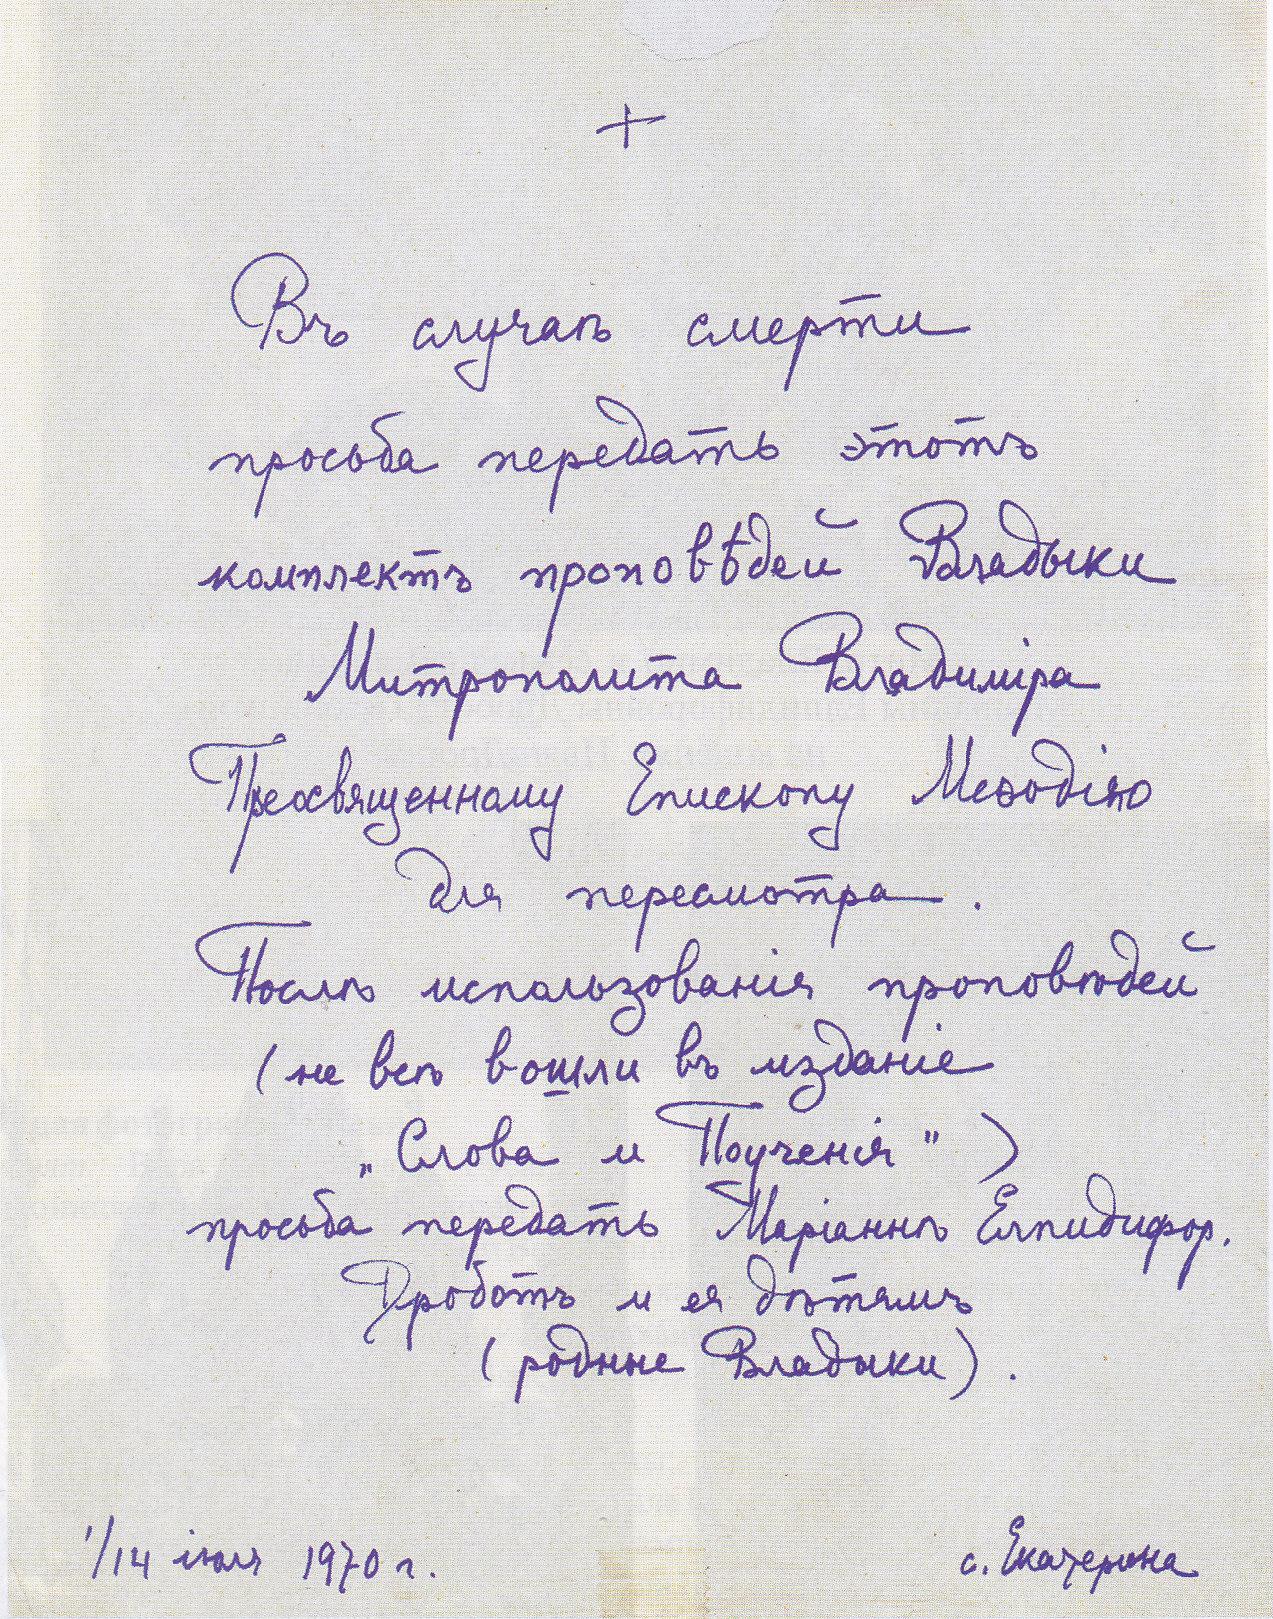 +
Въ случаѣ смерти
просьба передать этотъ
комплектъ проповѣдей Владыки
Митрополита Владиміра
Преосвященному Епископу Меѳодію
для пересмотра.
Послѣ использованія проповѣдей
(не всѣ вошли въ изданіе
„Слова и Поученія")
просьба передать Маріаннѣ Елпидифор.
Дроботъ и ея дѣтямъ
(родные Владыки).
1/14 іюля 1970 г.
с. Екатерина